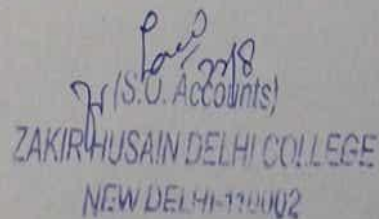 (S.O. Accounts)
ZAKIR HUSAIN DELHI COLLEGE
NEW DELHI-110002